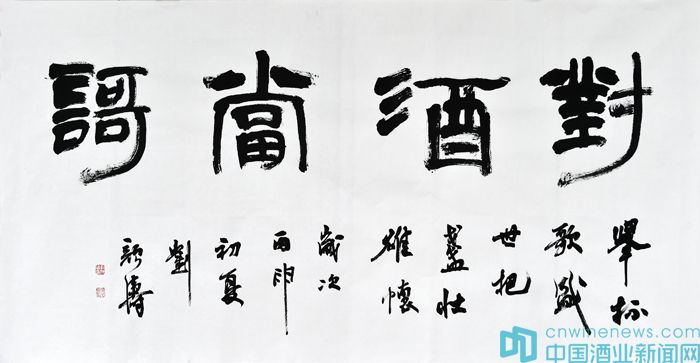 對酒當謌
舉杯
歌盛
世把
盞壮
雄懷
歲次
丙申
初夏
劉
cnwinenews.com
中国酒业新闻网